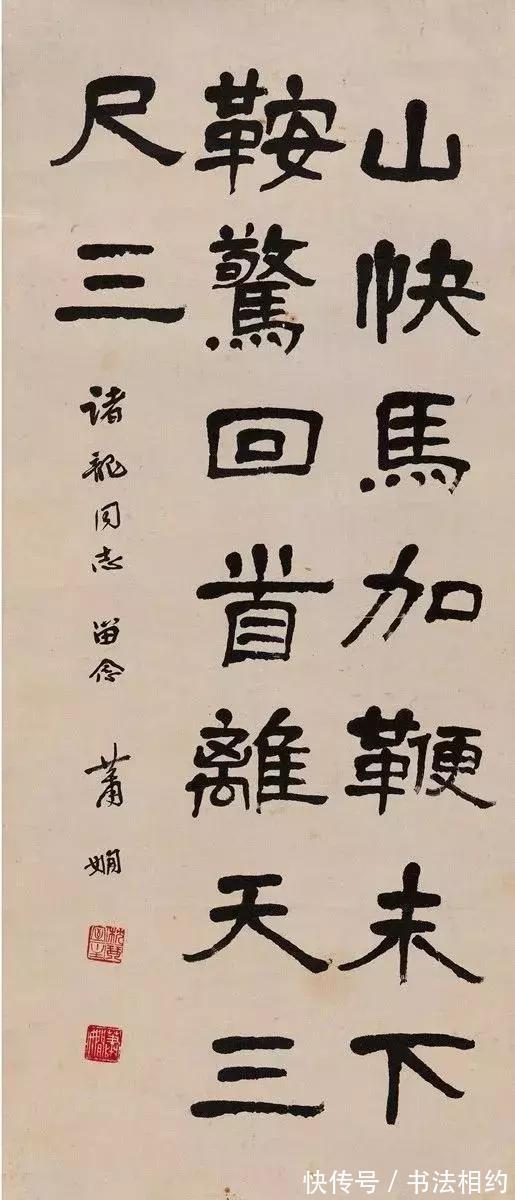 山快馬加鞭未下
鞍驚回首離天三
尺三
诸龍同志 留念 萧娴
萧娴
快传号 / 书法相约